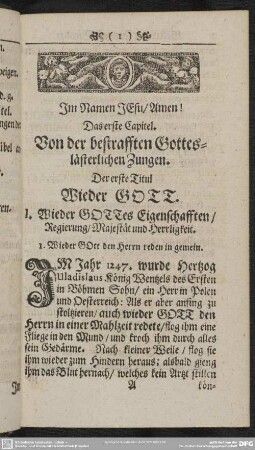 ( 1 )
Im Namen JEsu/ Amen!
Das erste Capitel.
Von der bestrafften Gottes-
lästerlichen Zungen.
Der erste Titul
Wieder GOTT.
I. Wieder GOTTes Eigenschafften/
Regierung/ Majestät und Herrligkeit.
1. Wieder GOtt den Herrn reden in gemein.
IM Jahr 1247. wurde Hertzog
Uladislaus König Wentzels des Ersten
in Böhmen Sohn/ ein Herr in Polen
und Oesterreich: Als er aber anfing zu
stoltzieren/ auch wieder GOTT den
Herrn in einer Mahlzeit redete/ flog ihm eine
Fliege in den Mund/ und kroch ihm durch alles
sein Gedärme. Nach kleiner Weile/ flog sie
ihm wieder zum Hindern heraus; alsbald gieng
ihm das Blut hernach/ welches kein Artzt stillen
A kön-